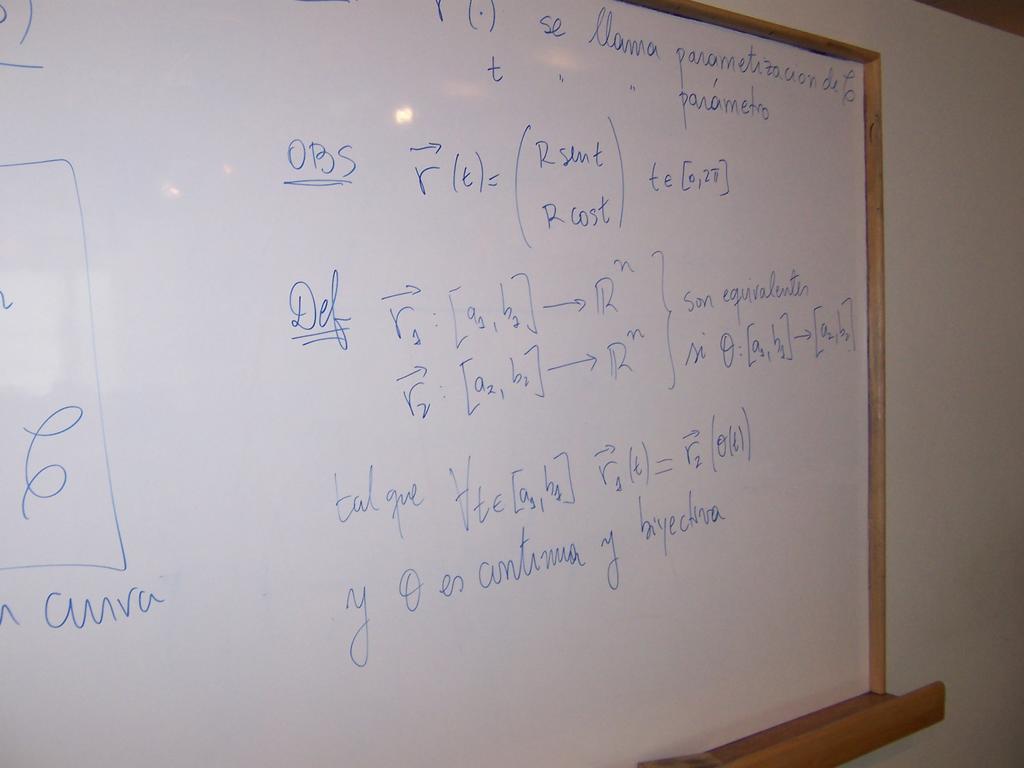 r(·) se llama parametización de 𝒞
t " " parámetro
OBS r⃗(t)= (R sent R cost) t∈[0,2π]
Def r⃗₁: [a₁,b₁] → ℝⁿ } son equivalentes
r⃗₂: [a₂,b₂] → ℝⁿ si θ:[a₁,b₁]→[a₂,b₂]
tal que ∀t∈[a₁,b₁] r⃗₁(t) = r⃗₂(θ(t))
y θ es continua y biyectiva
𝒞
curva